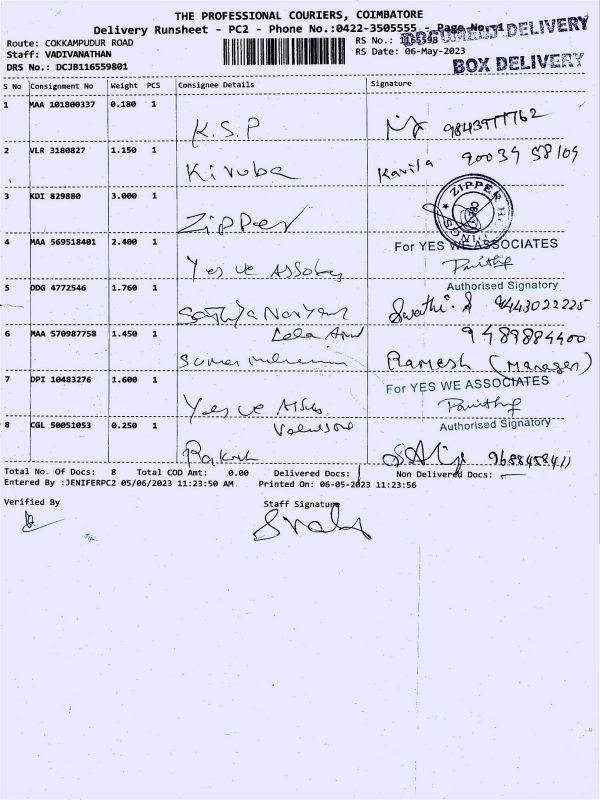 THE PROFESSIONAL COURIERS, COIMBATORE
Delivery Runsheet - PC2 - Phone No.:0422-3505555 - Page No.:1
DOCUMENT DELIVERY
Route: COKKAMPUDUR ROAD RS No.: 1165598
Staff: VADIVANATHAN RS Date: 06-May-2023
DRS No.: DCJB116559801 BOX DELIVERY
S No Consignment No Weight PCS Consignee Details Signature
1 MAA 101800337 0.180 1
K.S.P
2 VLR 3180827 1.150 1
Kiruba Kavita 90039 58109
3 KDI 829880 3.000 1
Zipper ZIPPER
4 MAA 569518401 2.400 1 For YES WE ASSOCIATES
Yes we
Authorised Signatory
5 DDG 4772546 1.760 1
Swathi. S 9443022225
6 MAA 570987758 1.450 1 9489884400
Ramesh (Manager)
7 DPI 10483276 1.600 1 For YES WE ASSOCIATES
Yes we
Authorised Signatory
8 CGL 50051053 0.250 1
Rakesh 9688458411
Total No. Of Docs: 8 Total COD Amt: 0.00 Delivered Docs: Non Delivered Docs:
Entered By :JENIFERPC2 05/06/2023 11:23:50 AM Printed On: 06-05-2023 11:23:56
Verified By Staff Signature